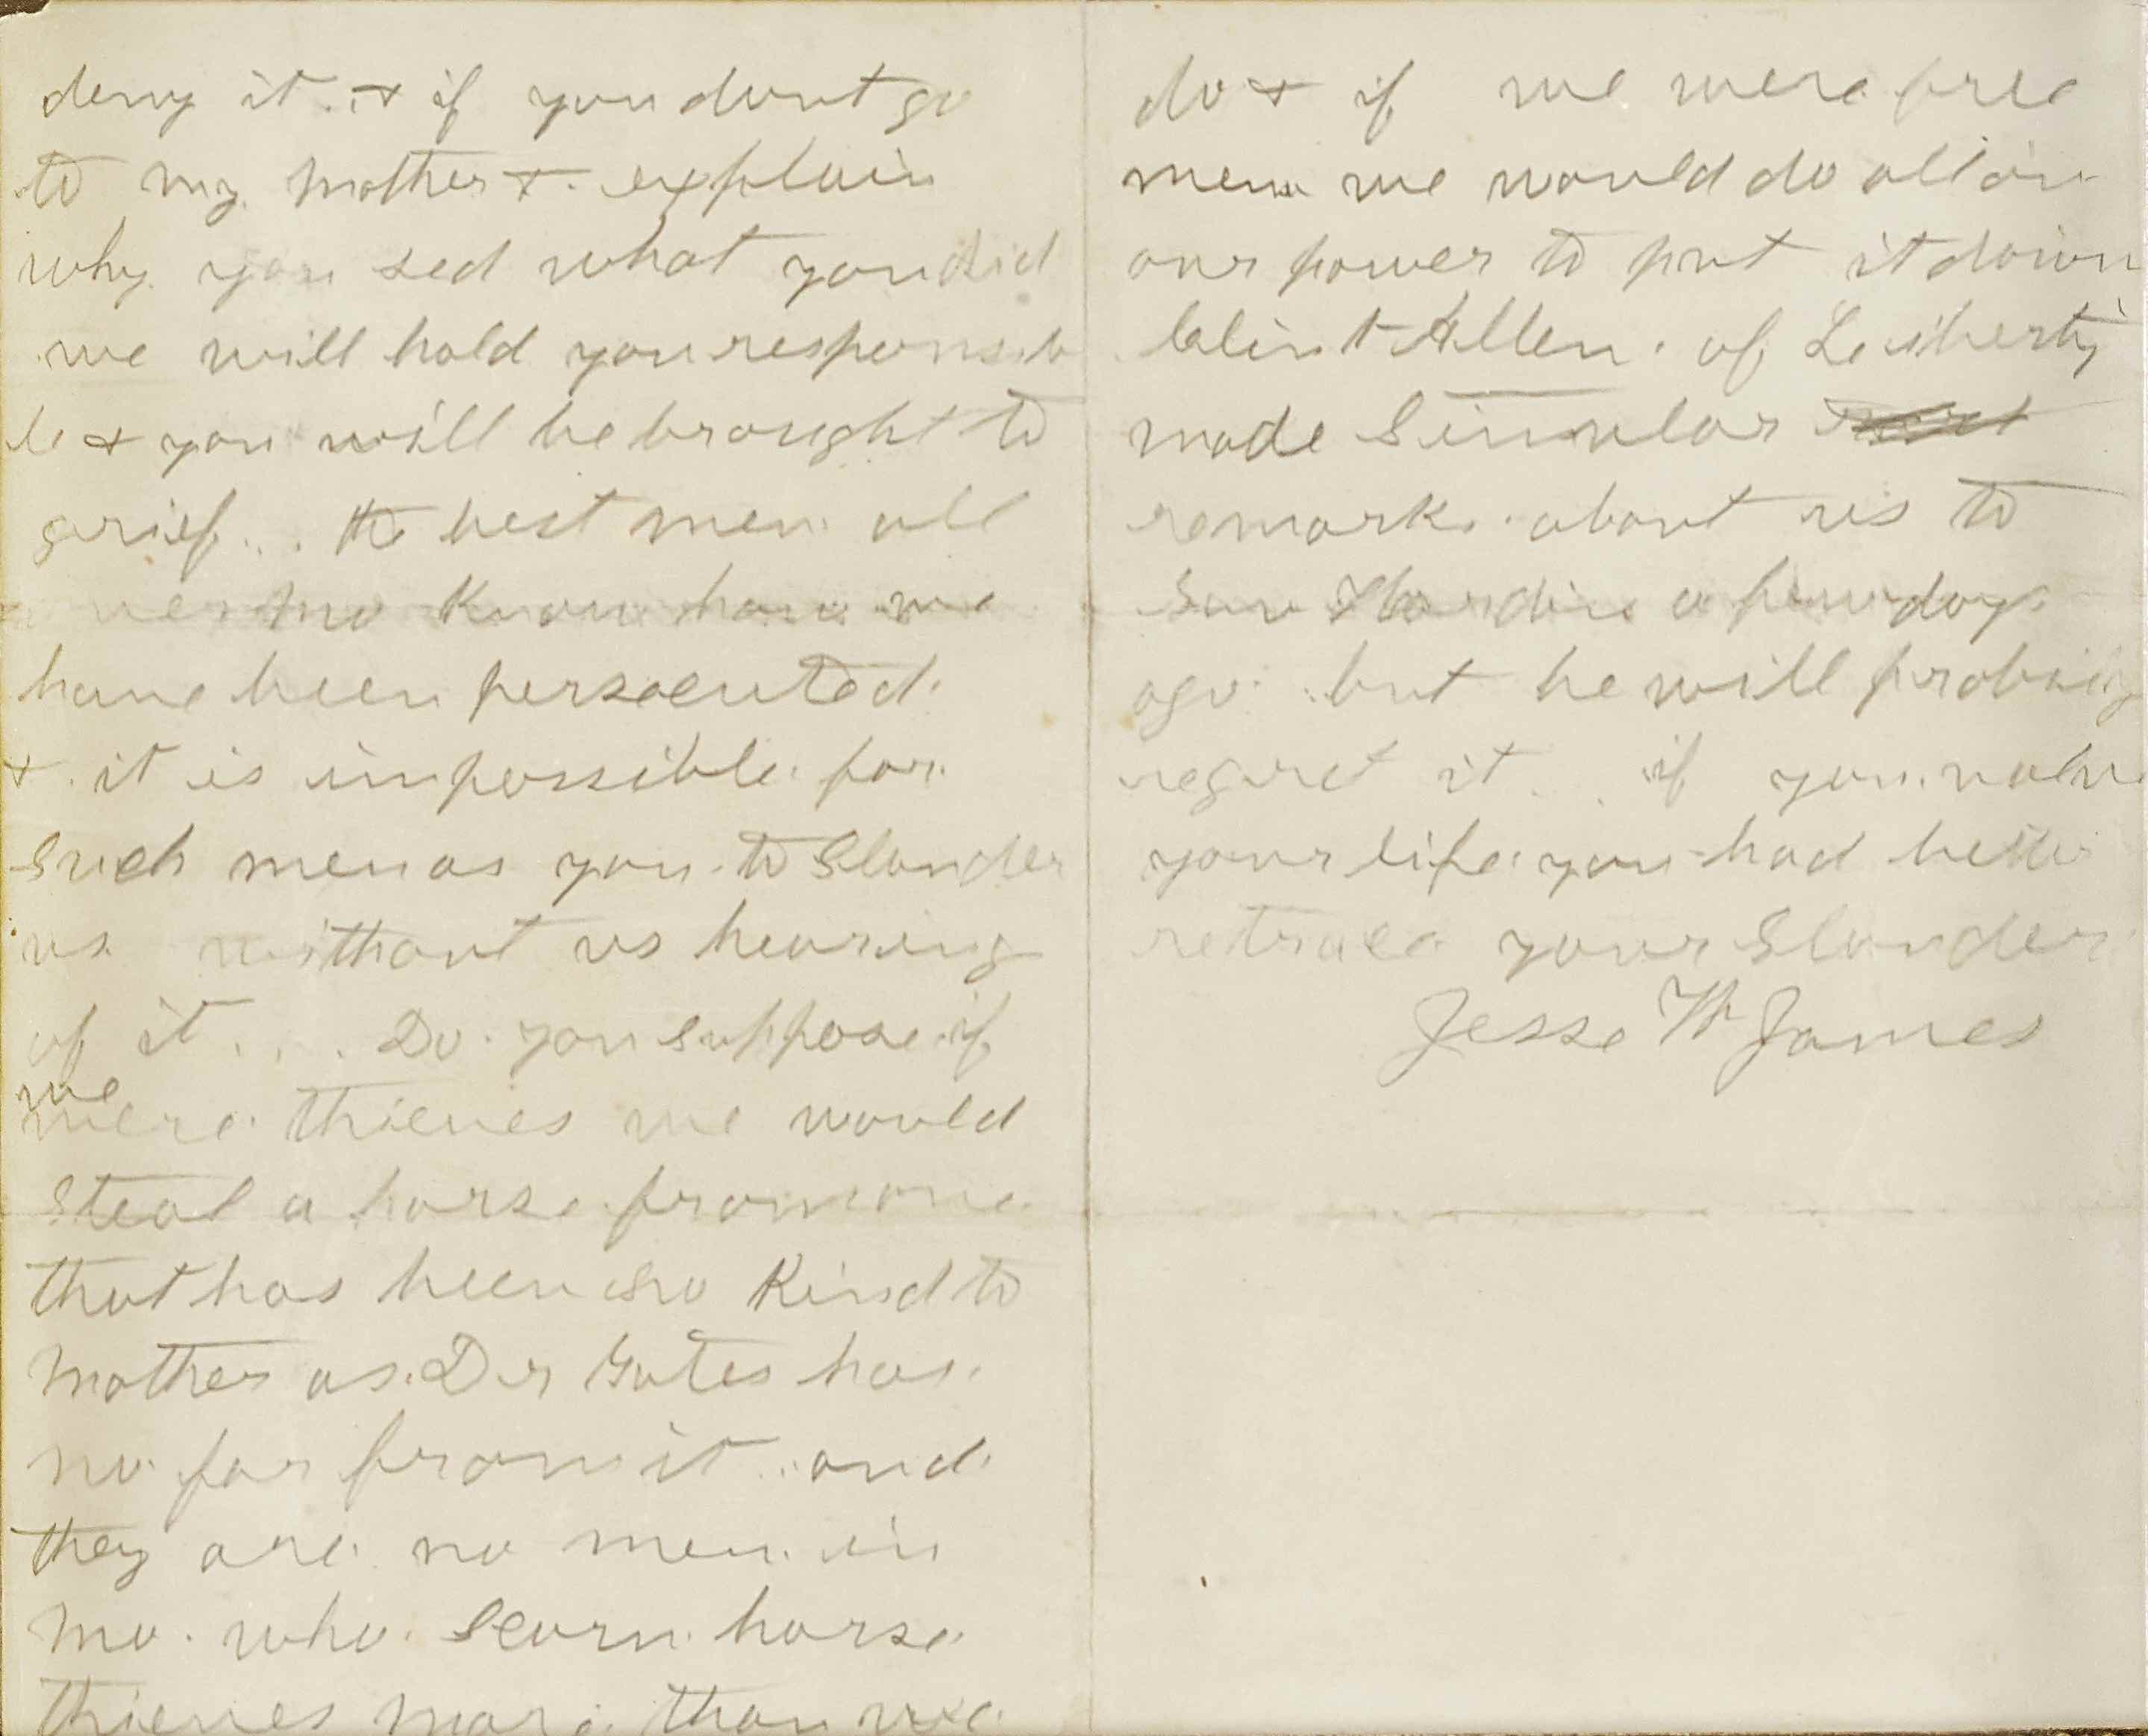 deny it. & if you dont go
to my mother & explain
why you sed what you did
we will hold you responsib
le & you will be brought to
grief... the best men all
over Mo know how we
have been persacuted.
& it is impossible for
such men as you to Slander
us without us hearing
of it.... Do you suppose if
we
were thieves we would
steal a horse from one
that has been so Kind to
Mother as Dr Yates has.
no far from it .. and
they are no men in
Mo. who scorn horse
thieves more than we
do & if we were free
men we would do all in
our power to put it down
Clint Allen of Leiberty
made Simular
remarks about us to
Sam Hardin a few days
ago .. but he will probily
regret it .. if you valu
your life you had better
retrace your Slander
Jesse W James